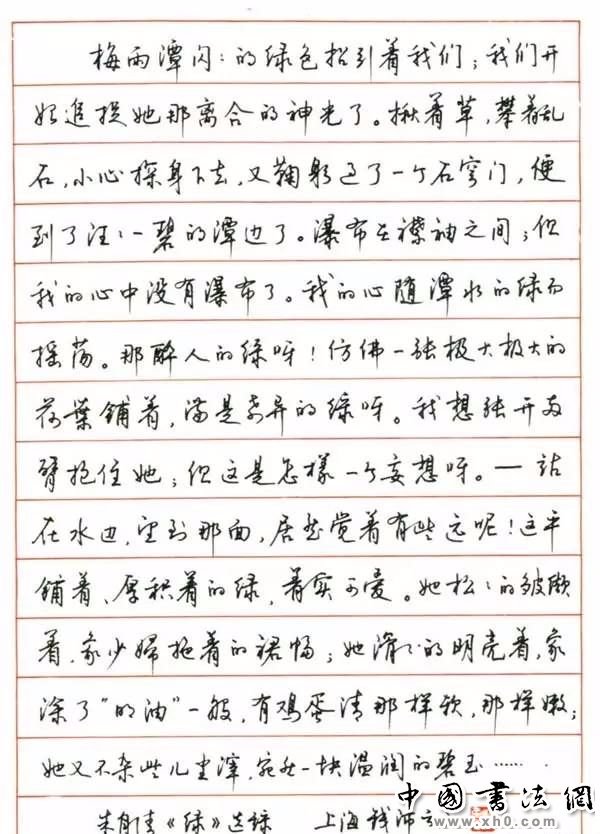 梅雨潭闪々的绿色招引着我们；我们开
始追捉她那离合的神光了。揪着草，攀着乱
石，小心探身下去，又鞠躬过了一个石穹门，便
到了汪々一碧的潭边了。瀑布在襟袖之间；但
我的心中没有瀑布了。我的心随潭水的绿而
摇荡。那醉人的绿呀！仿佛一张极大极大的
荷葉铺着，满是奇异的绿呀。我想张开两
臂抱住她；但这是怎樣一个妄想呀。—站
在水边，望到那面，居然觉着有些远呢！这平
铺着、厚积着的绿，着实可爱。她松々的皱缬
着，象少婦拖着的裙幅；她滑々的明亮着，象
涂了“明油”一般，有鸡蛋清那样软，那样嫩；
她又不杂些儿尘滓，宛然一块温润的碧玉……
朱自清《绿》选録 上海钱沛
中國書法網
www.xh0.com